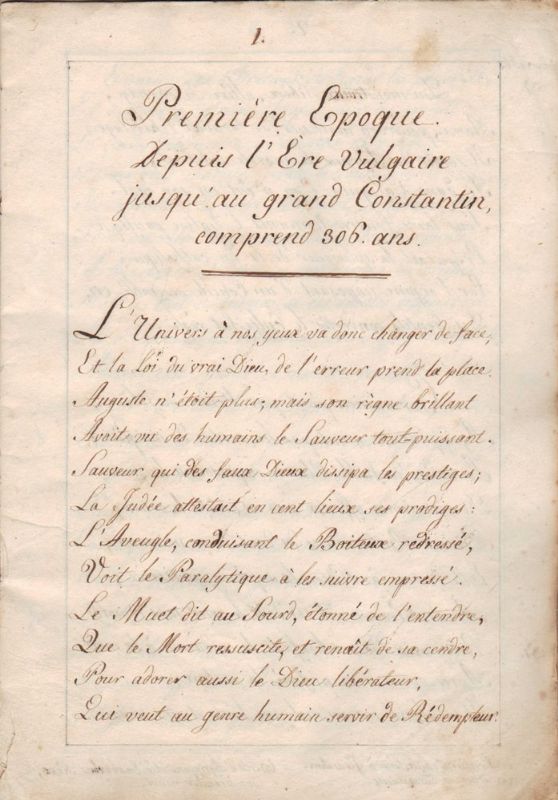 1.
Première Epoque.
Depuis l'Ère Vulgaire
jusqu'au grand Constantin,
comprend 306 ans.
L'Univers à nos yeux va donc changer de face,
Et la Loi du vrai Dieu, de l'erreur prend la place.
Auguste n'étoit plus; mais son règne brillant
Avoit vu des humains le Sauveur tout-puissant.
Sauveur, qui des faux Dieux dissipa les prestiges;
La Judée attestait en cent lieux ses prodiges:
L'Aveugle, conduisant le Boiteux redressé,
Voit le Paralytique à les suivre empressé.
Le Muet dit au Sourd, étonné de l'entendre,
Que le Mort ressuscite, et renaît de sa cendre,
Pour adorer aussi le Dieu libérateur,
Qui veut au genre humain servir de Rédempteur.